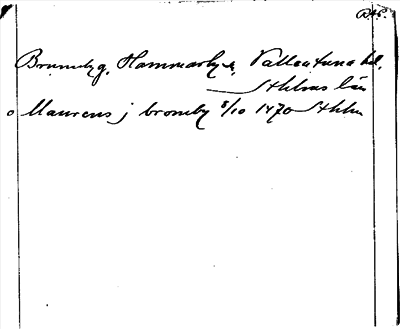 Ba45.
Brunnby g, Hammarby s, Vallentuna hd,
Sthlms län
o Maurens j bromby 8/10 1470 Sthlm